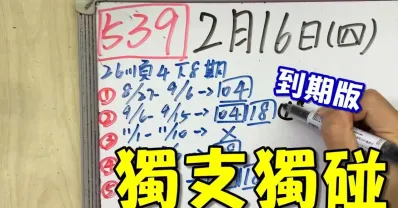 539 2月16日(四)
26順4下8期
到期版
① 8/27- 9/6→ 04
② 9/6- 9/15→ 04 18
③ 11/1- 11/10→ X
④
獨支獨碰